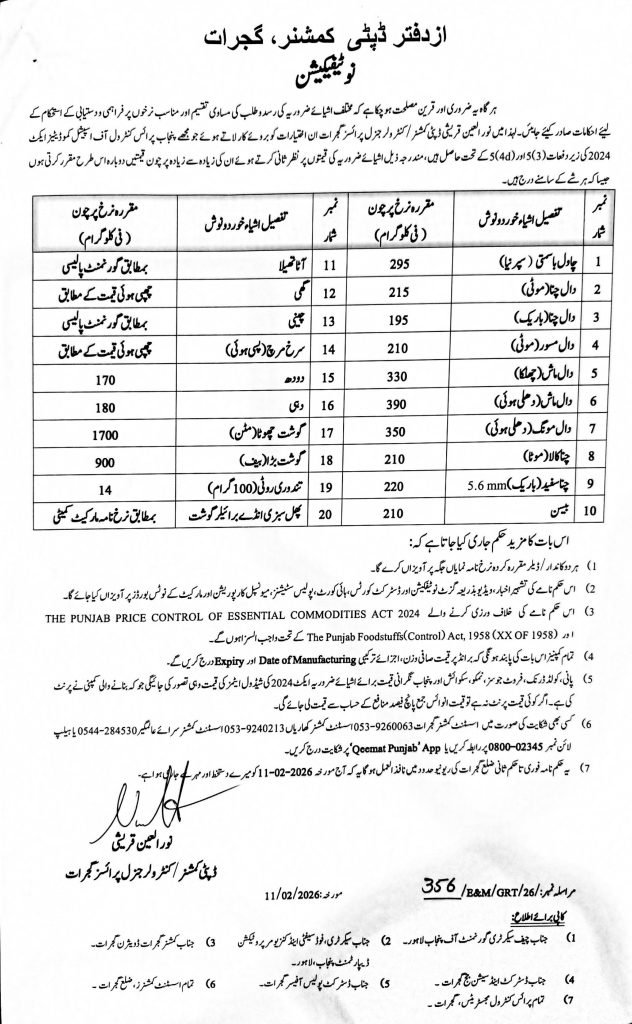 از دفتر ڈپٹی کمشنر، گجرات
نوٹیفکیشن
ہر گاہ یہ ضروری اور قرین مصلحت ہو چکا ہے کہ مختلف اشیائے ضروریہ کی رسد و طلب کی مساوی تقسیم اور مناسب نرخوں پر فراہمی و دستیابی کے استحکام کے
لیئے احکامات صادر کیئے جائیں۔ لہذا میں نور العین قریشی ڈپٹی کمشنر/کنٹرولر جنرل پرائسز گجرات ان اختیارات کو بروئے کار لاتے ہوئے جو مجھے پنجاب پرائس کنٹرول آف اسینشل کموڈیٹیز ایکٹ
2024 کی زیر دفعات (3)5 اور (4d)5 کے تحت حاصل ہیں، مندرجہ ذیل اشیائے ضروریہ کی قیمتوں پر نظر ثانی کرتے ہوئے ان کی زیادہ سے زیادہ پرچون قیمتیں دوبارہ اس طرح مقرر کرتی ہوں
جیسا کہ ہر شے کے سامنے درج ہیں۔
نمبر شمار | تفصیل اشیاء خورد و نوش | مقررہ نرخ پرچون (فی کلوگرام) | نمبر شمار | تفصیل اشیاء خورد و نوش | مقررہ نرخ پرچون (فی کلوگرام)
1 | چاول باسمتی (سپر نیا) | 295 | 11 | آٹا تھیلا | بمطابق گورنمنٹ پالیسی
2 | دال چنا (موٹی) | 215 | 12 | گھی | چھپی ہوئی قیمت کے مطابق
3 | دال چنا (باریک) | 195 | 13 | چینی | بمطابق گورنمنٹ پالیسی
4 | دال مسور (موٹی) | 210 | 14 | سرخ مرچ (پسی ہوئی) | چھپی ہوئی قیمت کے مطابق
5 | دال ماش (چھلکا) | 330 | 15 | دودھ | 170
6 | دال ماش (دھلی ہوئی) | 390 | 16 | دہی | 180
7 | دال مونگ (دھلی ہوئی) | 350 | 17 | گوشت چھوٹا (مٹن) | 1700
8 | چنا کالا (موٹا) | 210 | 18 | گوشت بڑا (بیف) | 900
9 | چنا سفید (باریک) 5.6 mm | 220 | 19 | تندوری روٹی (100 گرام) | 14
10 | بیسن | 210 | 20 | پھل سبزی انڈے برائیلر گوشت | بمطابق نرخ نامہ مارکیٹ کمیٹی
اس بات کا مزید حکم جاری کیا جاتا ہے کہ:
1) ہر دوکاندار/ڈیلر مقرر کردہ نرخ نامہ نمایاں جگہ پر آویزاں کرے گا۔
2) اس حکم نامے کی تشہیر اخبار، ویڈیو بذریعہ گزٹ نوٹیفکیشن اور ڈسٹرکٹ کورٹس، ہائی کورٹ، پولیس سٹیشنز، میونسپل کارپوریشن اور مارکیٹ کے نوٹس بورڈز پر آویزاں کیا جائے گا۔
3) اس حکم نامے کی خلاف ورزی کرنے والے THE PUNJAB PRICE CONTROL OF ESSENTIAL COMMODITIES ACT 2024
اور The Punjab Foodstuffs(Control) Act, 1958 (XX OF 1958) کے تحت واجب السزا ہوں گے۔
4) تمام کمپنیز اس بات کی پابند ہونگی کہ برانڈ پر قیمت صافی وزن، اجزائے ترکیبی Date of Manufacturing اور Expiry درج کریں گے۔
5) پانی، کولڈ ڈرنک، فروٹ جوسز، نمکو، سکوائش اور پنجاب نگرانی قیمت برائے اشیائے ضروریہ ایکٹ 2024 کی شیڈول آئیٹمز کی قیمت وہی تصور کی جائیگی جو کہ بنانے والی کمپنی نے پرنٹ
کی ہے۔ اگر کوئی قیمت پرنٹ نہ ہے تو قیمت انوائس جمع پانچ فیصد منافع کے حساب سے قیمت لی جائے گی۔
6) کسی بھی شکایت کی صورت میں اسسٹنٹ کمشنر گجرات 9260063-053 اسسٹنٹ کمشنر کھاریاں 9240213-053 اسسٹنٹ کمشنر سرائے عالمگیر 284530-0544 یا ہیلپ
لائن نمبر 02345-0800 پر رابطہ کریں یا 'Qeemat Punjab' App پر شکایت درج کریں۔
7) یہ حکم نامہ فوری تا حکم ثانی ضلع گجرات کی ریونیو حدود میں نافذ العمل ہوگا یہ کہ آج مورخہ 11-02-2026 کو میرے دستخط اور مہر سے جاری ہوا ہے۔
نور العین قریشی
ڈپٹی کمشنر/کنٹرولر جنرل پرائسز گجرات
مراسلہ نمبر: 356 /E&M/GRT/26/ مورخہ: 11/02/2026
کاپی برائے اطلاع:
1) جناب چیف سیکرٹری گورنمنٹ آف پنجاب لاہور۔ 2) جناب سیکرٹری، فوڈ سیفٹی اینڈ کنزیومر پروٹیکشن 3) جناب کمشنر گجرات ڈویژن گجرات۔
ڈیپارٹمنٹ پنجاب، لاہور۔
4) جناب ڈسٹرکٹ اینڈ سیشن جج گجرات۔ 5) جناب ڈسٹرکٹ پولیس آفیسر گجرات۔ 6) تمام اسسٹنٹ کمشنرز، ضلع گجرات۔
7) تمام پرائس کنٹرول مجسٹریٹس، گجرات۔